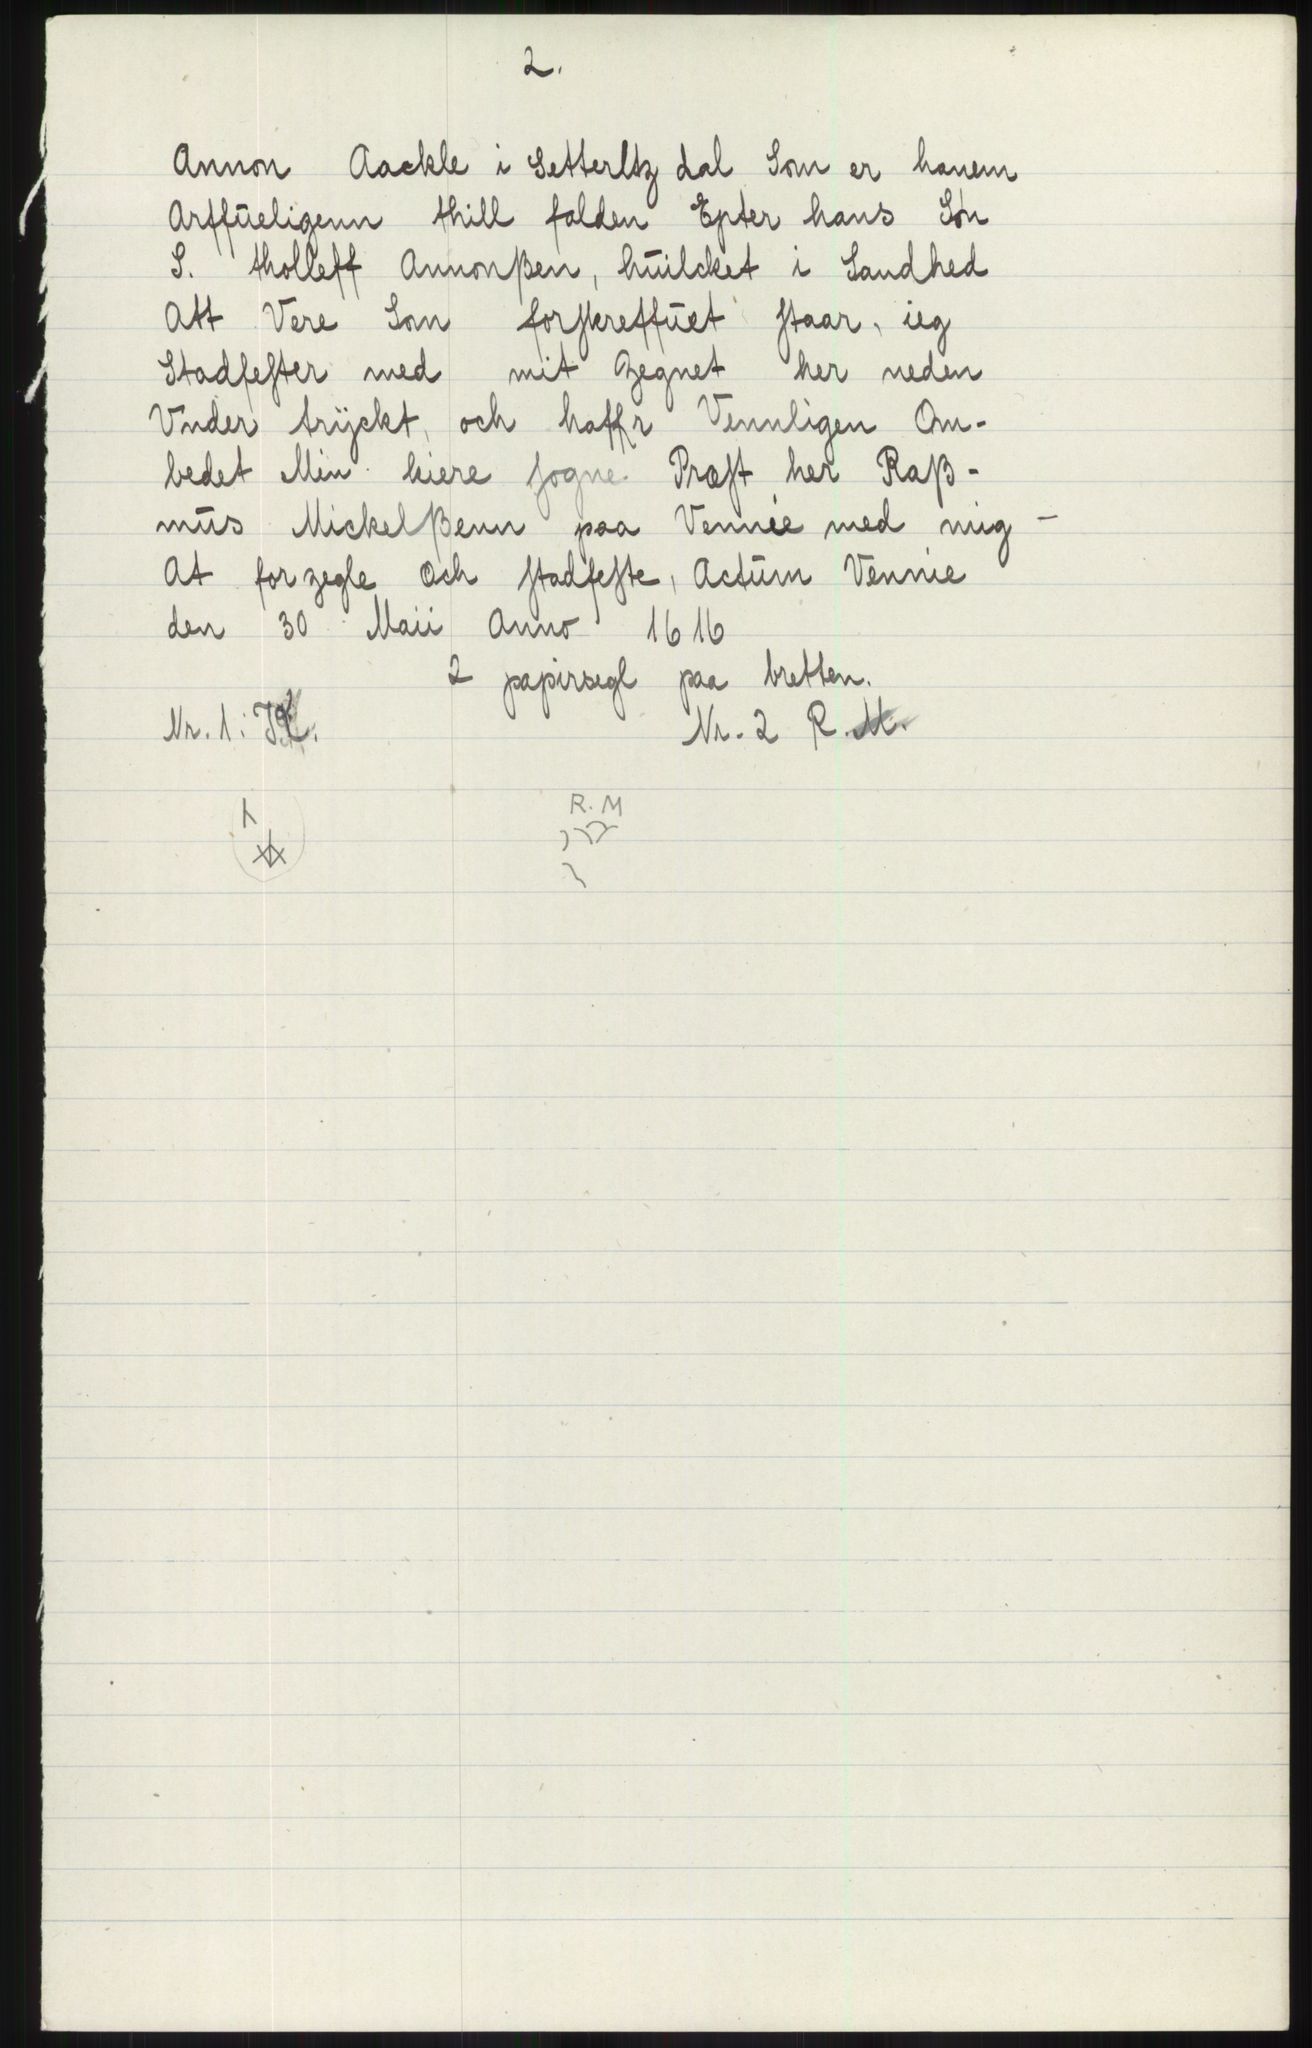 2.
Annon Aackle i Setterltz dal Som er hanem
Arffūeligenn thill falden Epter hans Søn
S. tholleff Annonßen, hūilcket i Sandhed
Att Vere Som forskreffūet staar, ieg
Stadfester med mit Zegnet her neden
Vnder trÿckt, och haffr Vennligen Om-
bedet Min kiere sogne Præst her Raß-
mūs Mickelßenn paa Vennie med mig -
At forzegle Och stadfeste, Actūm Vennie
den 30 Maii Anno 1616
2 papirsegl paa bretten.
Nr. 1: Nr. 2 R. M.
R. M